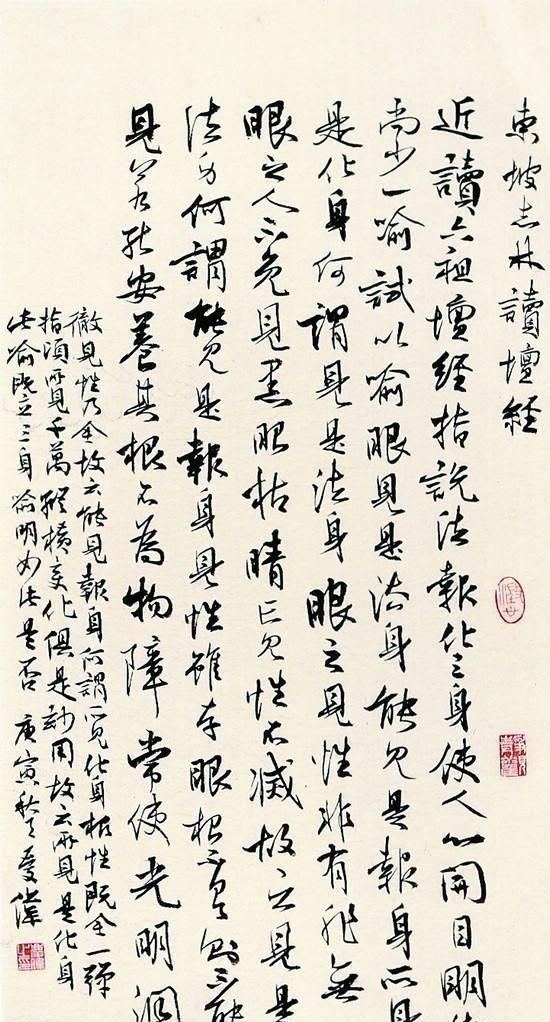 東坡志林讀壇經
近讀六祖壇經指說法報化三身使人心開目明
尚少一喻試以喻眼見是法身能見是報身所見
是化身何謂見是法身眼之見性非有非無
眼之人不免見黑眼枯睛亡見性不滅故云見是
法身何謂能見是報身見性雖存眼根不具則不能
見若能安養其根不為物障常使光明洞
徹見性乃全故云能見報身何謂所見化身根性既全一彈
指頃所見千萬縱橫變化俱是妙用故云所見是化身
此喻既立三身喻明如法是否 庚寅秋